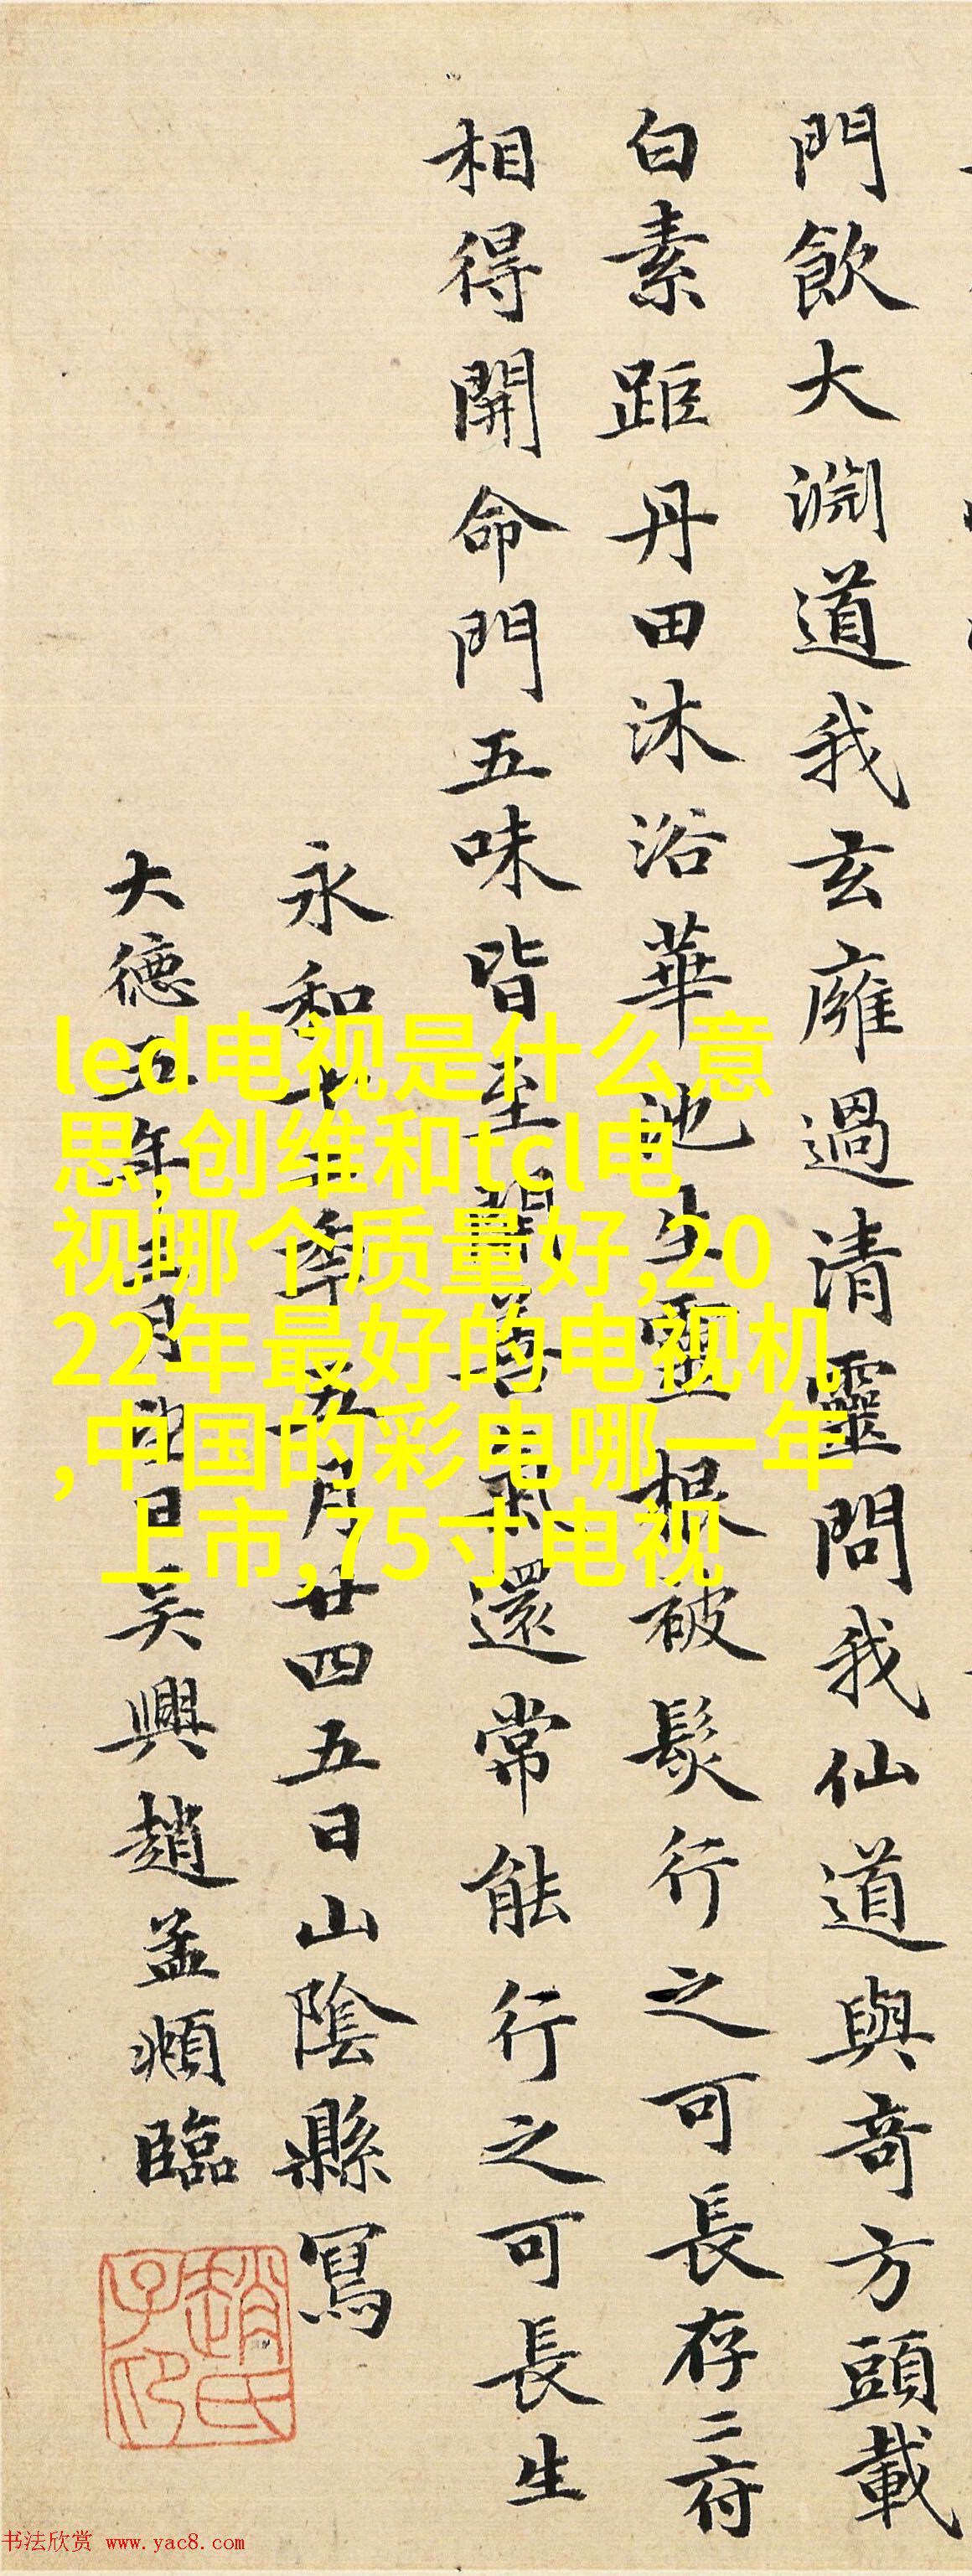 門飲大淵道我玄廱過清靈問我仙道與奇方頭載
白素距丹田沐浴華池生靈根被髮行之可長存二府
相得開命門五味皆至開善氣還常能行之可長生
永和十二年五月廿四五日山陰縣寫
大德五年月日吴興趙孟頫臨
趙氏
子卬
led电视是什么意
思,创维和tcl电
视哪个质量好,20
22年最好的电视机
,中国的彩电哪一年
上市,75寸电视
书法欣赏 www.yac8.com